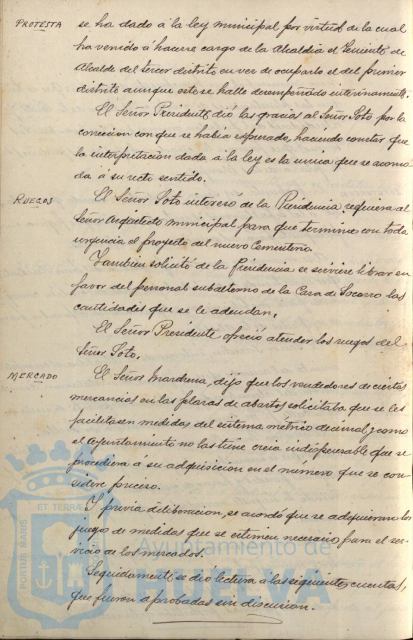 PROTESTA
se ha dado á la ley municipal por virtud de la cual
ha venido á hacerse cargo de la Alcaldia el Teniente de
Alcalde del tercer distrito en vez de ocuparlo el del primer
distrito aunque este se halle desempeñado interinamente.
El Señor Presidente dió las gracias al Señor Soto por la
correccion con que se habia expresado, haciendo constar que
la interpretación dada á la ley es la unica que se acomo
da á su recto sentido.
RUEGOS
El Señor Soto interesó de la Presidencia requiera al
Señor Arquitecto municipal para que termine con toda
urgencia el proyecto del nuevo Cementerio.
Tambien solicitó de la Presidencia se sirviese librar en
favor del personal subalterno de la Casa de Socorro las
cantidades que se le adeudan.
El Señor Presidente ofreció atender los ruegos del
Señor Soto.
MERCADO
El Señor Mardema, dijo que los vendedores de ciertas
mercancias en las plazas de abastos solicitaba que se les
facilitasen medidas del sistema métrico decimal, y como
el Ayuntamiento no las tiene creia indispensable que se
procediera á su adquisicion en el número que se con
sidere preciso.
Y previa deliberacion, se acordó que se adquieran los
juegos de medidas que se estimen necesario para el ser-
vicio de los mercados.
Seguidamente se dio lectura a las siguientes cuentas,
que fueron aprobadas sin discusion.
PORTUS MARIS
ET TERRÆ
Ayuntamiento de
HUELVA